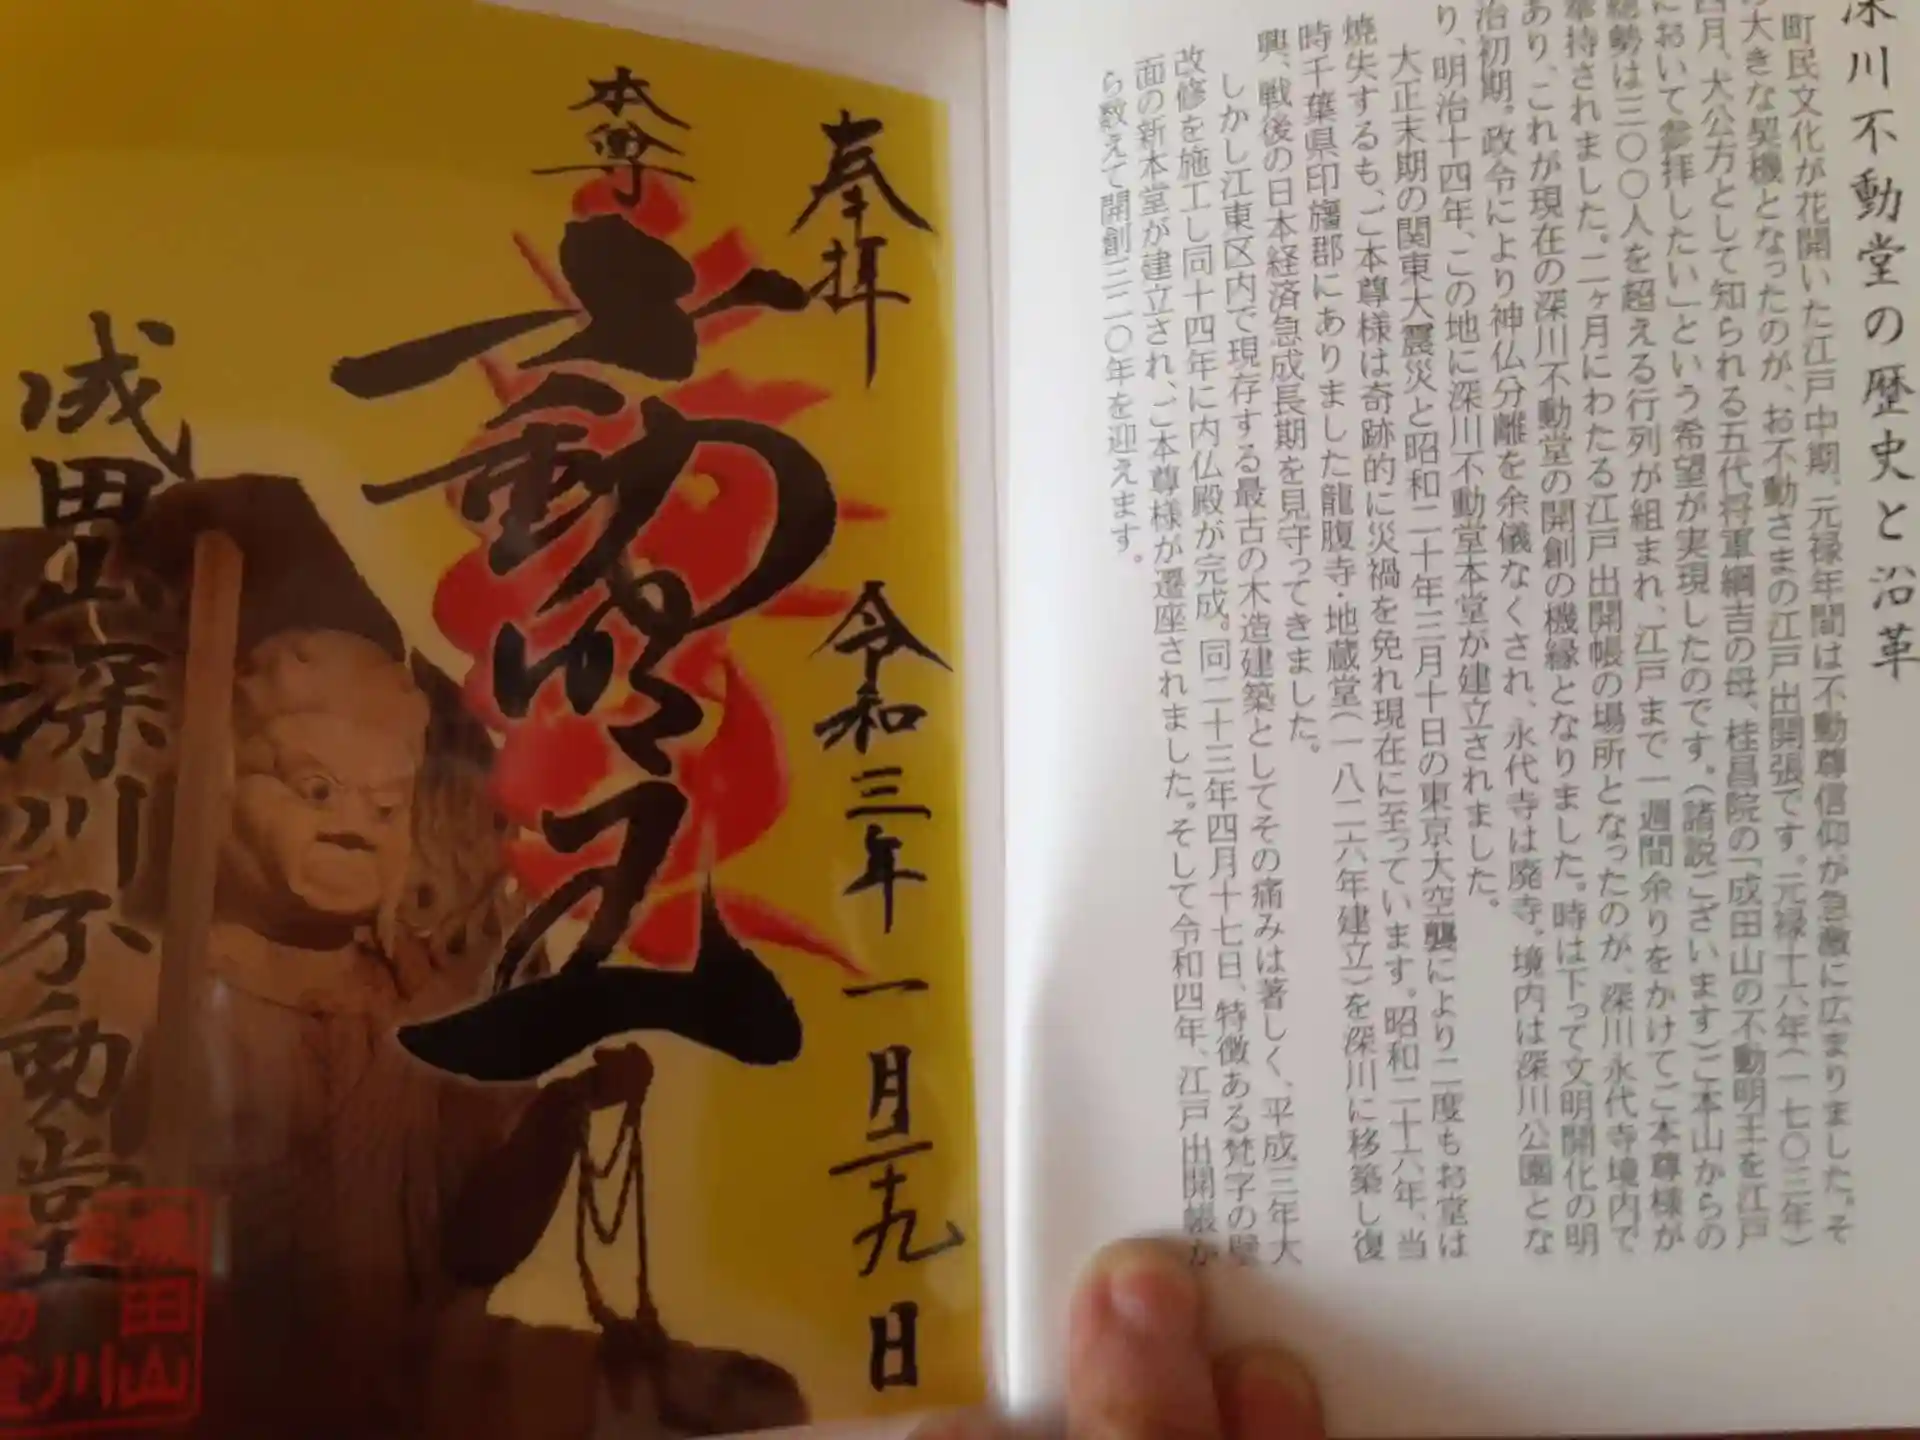 深川不動堂の歴史と沿革
町民文化が花開いた江戸中期、元禄年間は不動尊信仰が急激に広まりました。そ
の大きな契機となったのが、お不動さまの江戸出開張です。元禄十六年(一七〇三年)
四月、大公方として知られる五代将軍綱吉の母、桂昌院の「成田山の不動明王を江戸
において参拝したい」という希望が実現したのです。(諸説ございます)ご本山からの
総勢は三〇〇人を超える行列が組まれ、江戸まで一週間余りをかけてご本尊様が
奉持されました。二ヶ月にわたる江戸出開帳の場所となったのが、深川永代寺境内で
あり、これが現在の深川不動堂の開創の機縁となりました。時は下って文明開化の明
治初期。政令により神仏分離を余儀なくされ、永代寺は廃寺。境内は深川公園とな
り、明治十四年、この地に深川不動堂本堂が建立されました。
大正末期の関東大震災と昭和二十年三月十日の東京大空襲により二度もお堂は
焼失するも、ご本尊様は奇跡的に災禍を免れ現在に至っています。昭和二十六年、当
時千葉県印旛郡にありました龍腹寺・地蔵堂(一八二六年建立)を深川に移築し復
興、戦後の日本経済急成長期を見守ってきました。
しかし江東区内で現存する最古の木造建築としてその痛みは著しく、平成三年大
改修を施工し同十四年に内仏殿が完成。同二十三年四月十七日、特徴ある梵字の壁
面の新本堂が建立され、ご本尊様が遷座されました。そして令和四年、江戸出開帳か
ら数えて開創三二〇年を迎えます。
奉拝
令和三年一月二十九日
本尊
不動明王
成田山深川不動堂